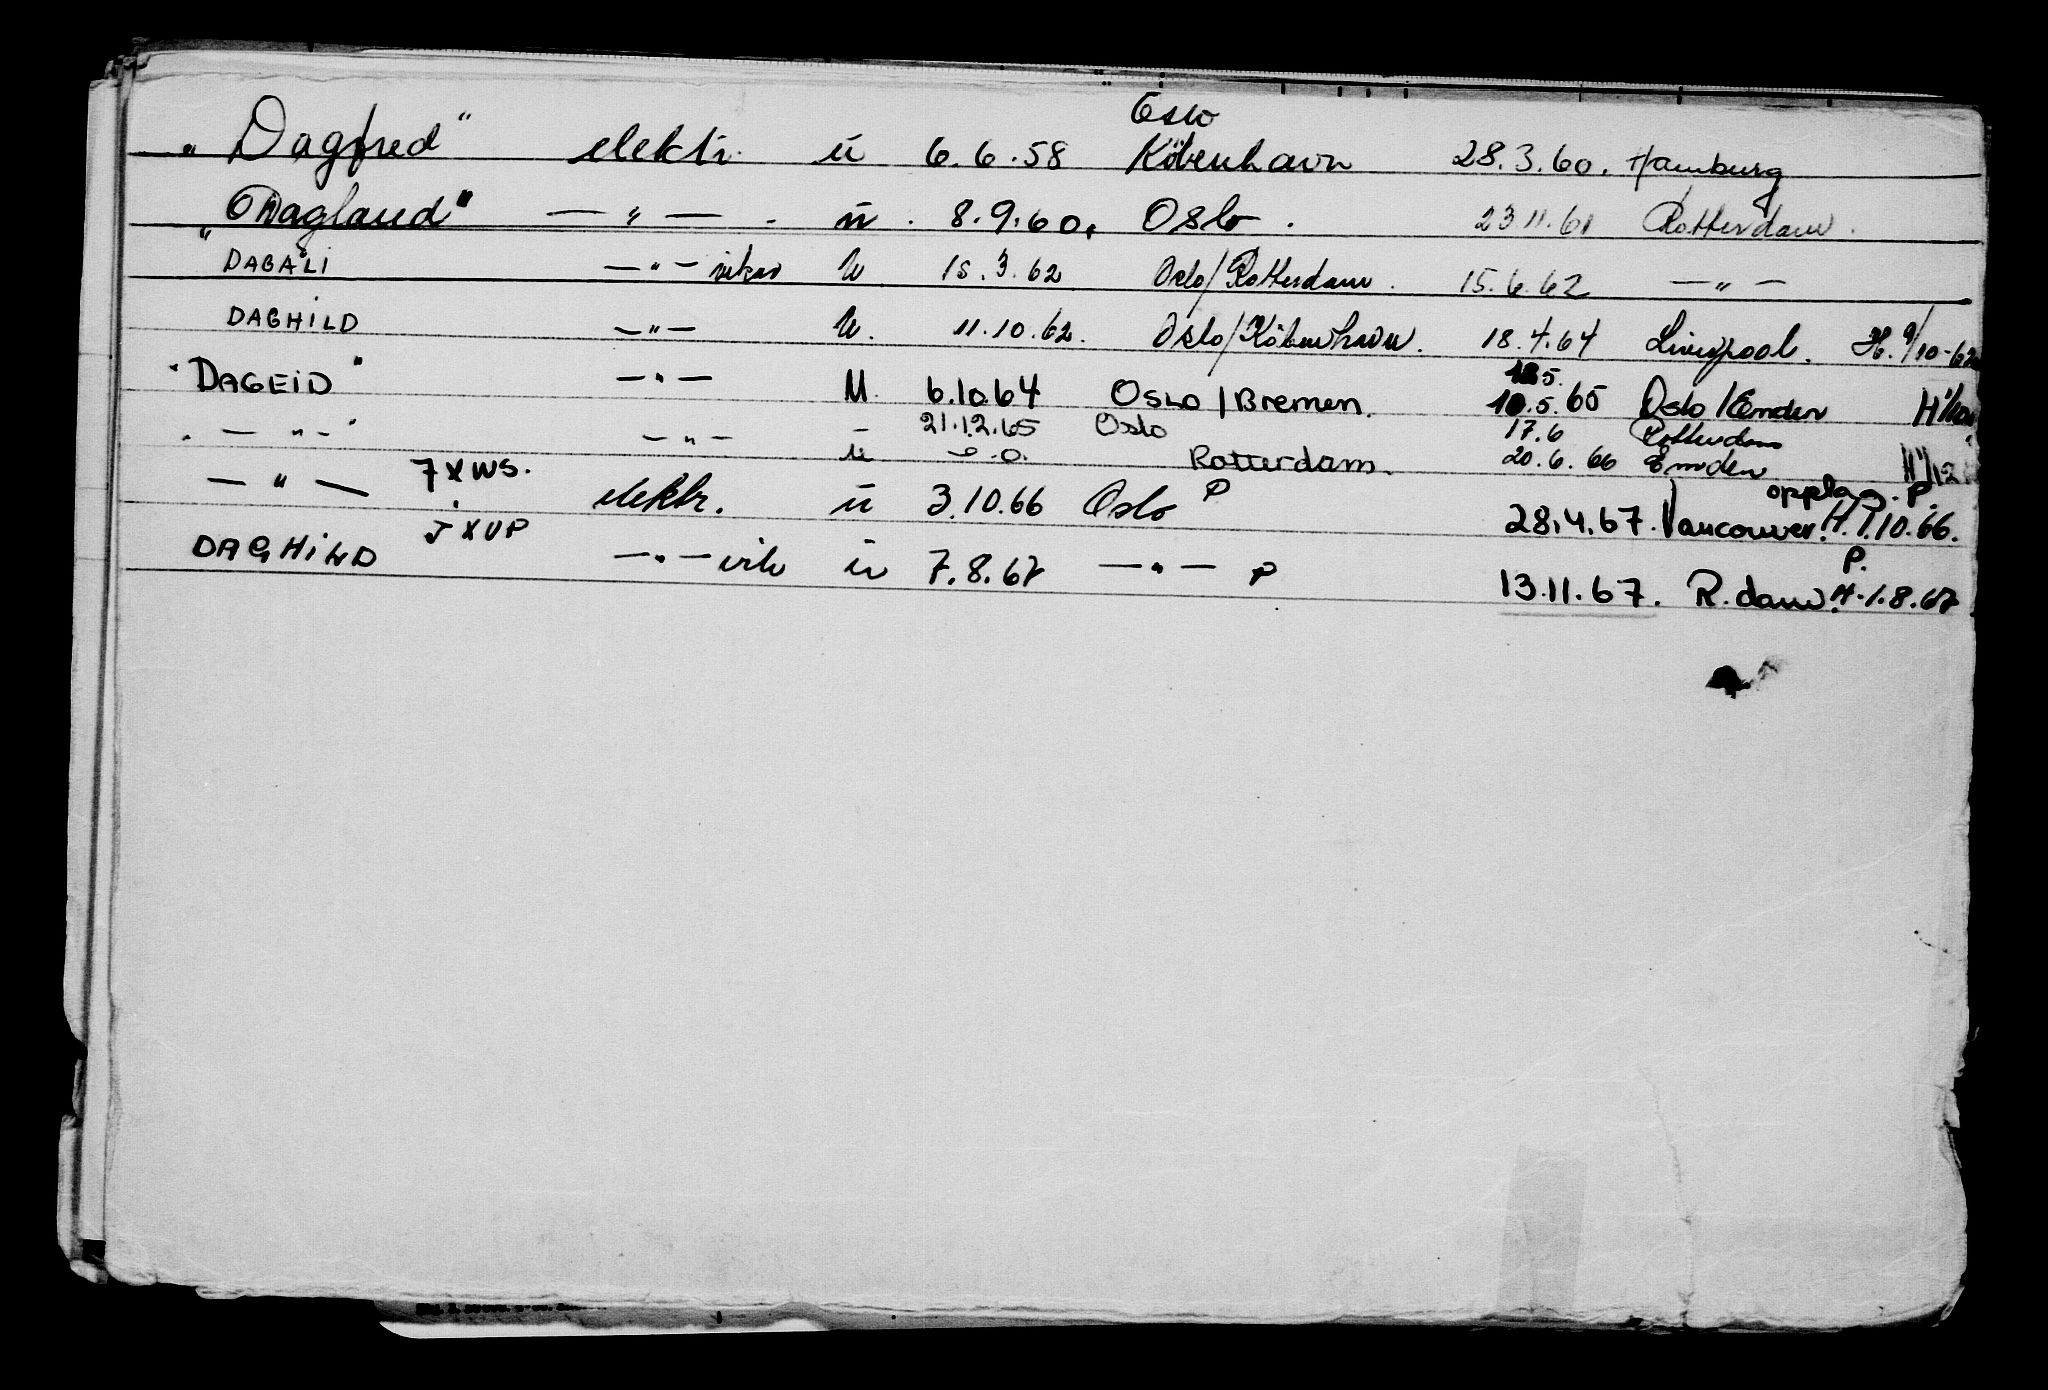 Oslo
"Dagfred" elektr. u 6.6.58 Köbenhavn 28.3.60. Hamburg
"Dagland" — " — . u . 8.9.60. Oslo . 23.11.61 Rotterdam .
DAGALI — " — vikar u 15.3.62 Oslo/Rotterdam . 15.6.62 — " —
DAGHILD — " — u. 11.10.62. Oslo/Köbenhavn. 18.4.64 Liverpool. H. 9/10-62
"DAGEID" — " — u 6.10.64 Oslo/Bremen. 10.5.65 Oslo/Emden
. — " — " — " — — 21.12.65 Oslo 17.6 Rotterdam
u Rotterdam. 20.6.66 Emden
— " — 7XWS. elektr. u 3.10.66 Oslo P 28.4.67. Vancouver. oppsag. P. H.1.10.66.
DAGHILD JXUP — " — vik u 7.8.67 — " — P 13.11.67. R.dam. P. H.1.8.67